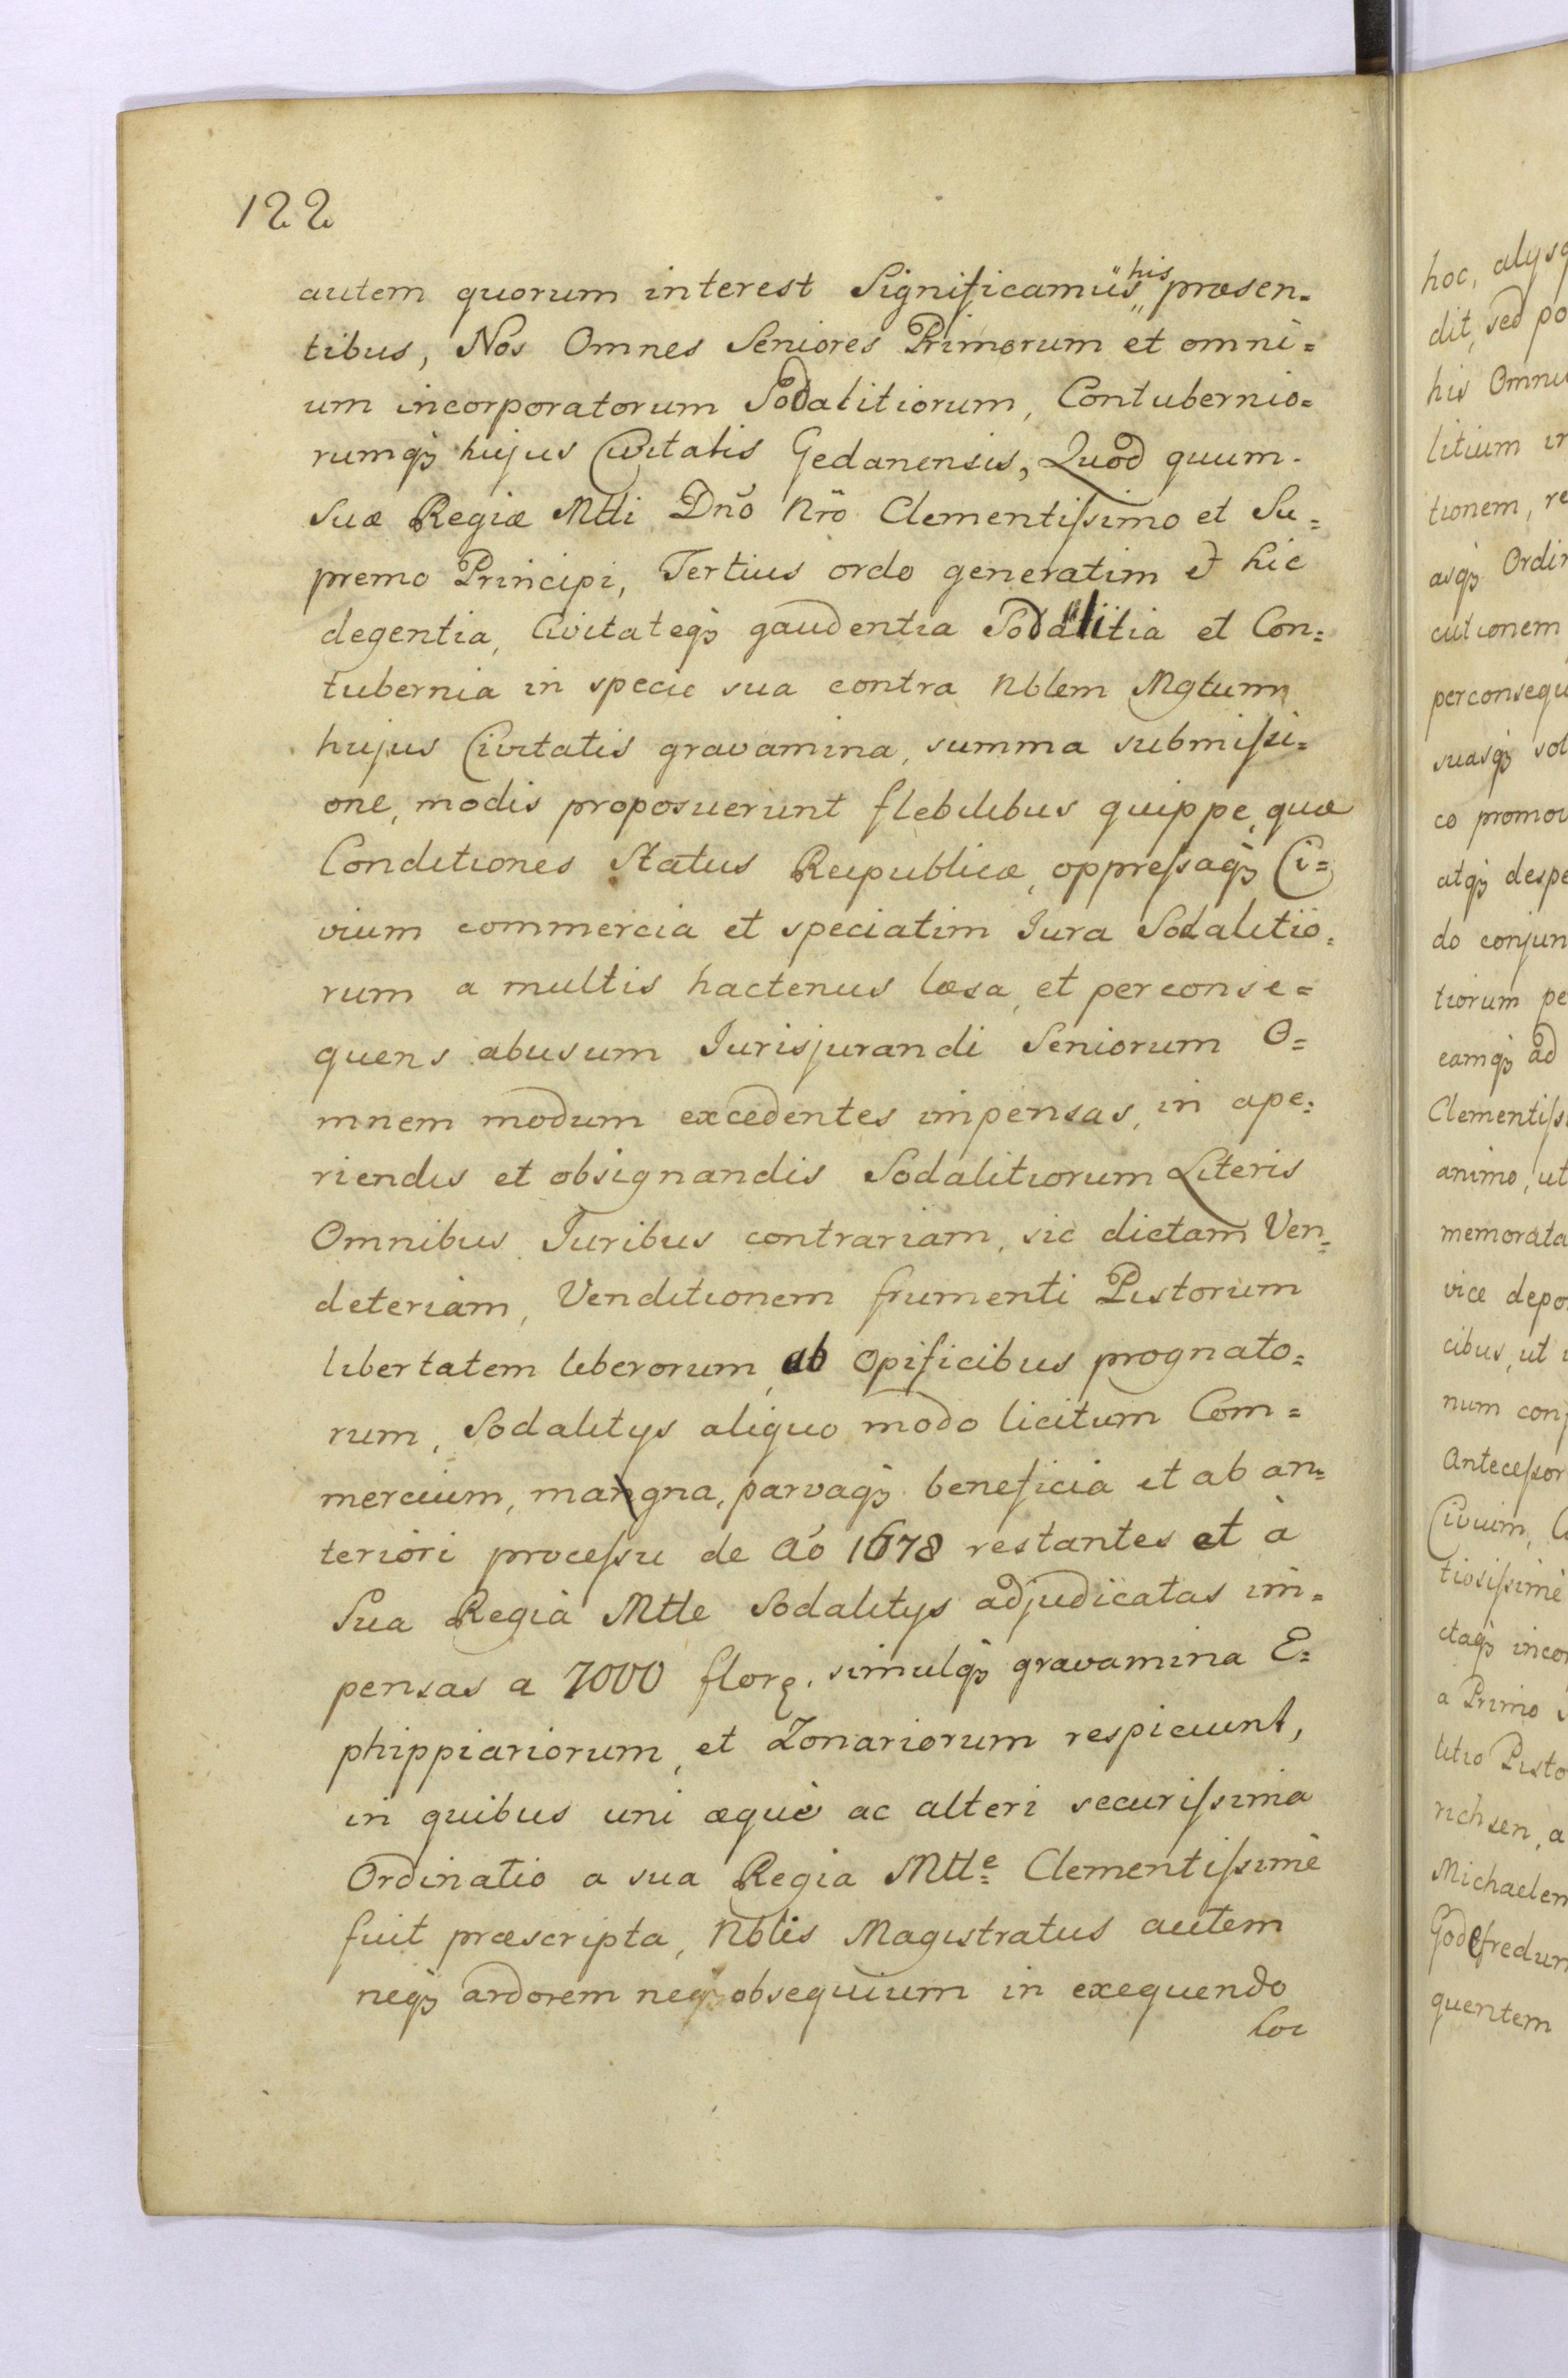 122
autem quorum interest Significamus his præsen=
tibus, Nos Omnes Seniores Primorum et omni=
um incorporatorum Sodalitiorum, Contubernio=
rumqꝫ hujus Civitatis Gedanensis, Quod quum
Suæ Regiæ Mtti Dnõ Nrõ Clementiſsimo et Su=
premo Principi, Tertius ordo generatim et hic
degentia, Civitateqꝫ gaudentia Sodalitia et Con=
tubernia in specie sua contra Nblem Mgtum
hujus Civitatis gravamina, summa submiſsi=
one, modis proposuerunt flebilibus quippe, quæ
Conditiones Status Reipublicæ, oppreſsaqꝫ Ci=
vium commercia et speciatim Iura Sodalitio=
rum a multis hactenus læsa, et per conse=
quens abusum Jurisjurandi Seniorum O=
mnem modum excedentes impensas, in ape=
riendis et obsignandis Sodalitiorum Literis
Omnibus Juribus contrariam, sic dictam Ven=
deteriam, Venditionem frumenti Pistorum
libertatem liberorum, ab Opificibus prognato=
rum, Sodalitys aliquo modo licitum Com=
mercium, mangna, parvaqꝫ beneficia et ab an=
teriori proceſsu de Aó 1678 restantes et à
Sua Regia Mtte Sodalitys adjudicatas im=
pensas a 7000 flor. simulqꝫ gravamina E=
phippiariorum, et Zonariorum respiciunt,
in quibus uni æquè ac alteri securiſsima
Ordinatio a sua Regia Mtte Clementiſsimè
fuit præscripta, Nblis Magistratus autem
neqꝫ ardorem neqꝫ obsequium in exequendo
hoc
hoc, alysq
dit, sed po
his Omni
litium in
tionem, re
asqꝫ Ordin
cutionem
perconsequ
suasqꝫ sol
co promov
atqꝫ despe
do conjun
tiorum pe
eamqꝫ ad
Clementiſsi
animo, ut
memorata
vice depo
cibus, ut i
num conj
Anteceſsor
Civium, C
tiosiſsimè
ctaqꝫ incor
a Primo S
litio Pisto
richsen, a
Michaelem
Godefredum
quentem